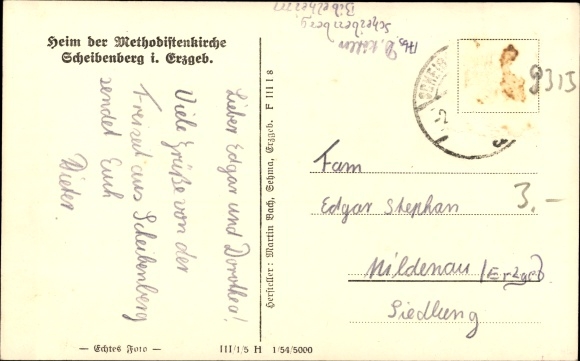 Heim der Methodistenkirche
Scheibenberg i. Erzgeb.
Lieber Edgar und Dorothea!
Viele Grüße von der
Freizeit aus Scheibenberg
sendet Euch
Dieter.
— Echtes Foto —
III/1/5 H 1/54/5000
Hersteller: Martin Bach, Sehma, Erzgeb. F III 1 8
Abs. D. Köhler
Scheibenberg
Bibelheim
SCHEIB
-2
9315
3.-
Fam
Edgar Stephan
Mildenau /Erzgeb
Siedlung